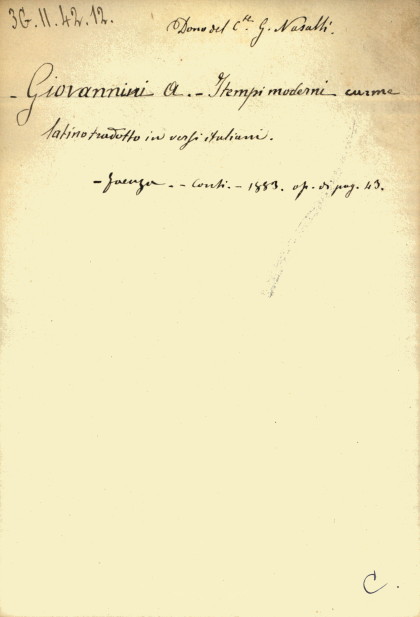 3G.II.42.12.
Dono del C.te G. Nasalli.
- Giovannini A. - I tempi moderni carme
latino tradotto in versi italiani.
- Faenza. - Conti. - 1883. op. di pag. 43.
C.